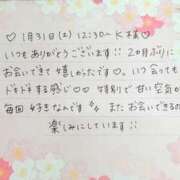 ♡ 1月31日(土) 12:30〜 K様 ♡
いつもありがとうございます!! 2か月ぶりに
お会いできて嬉しかったです♡。いつ会っても
ドキドキする感じ♡♡ 特別で甘い空気が
毎回好きなんです またお会いできるの
楽しみにしています!!